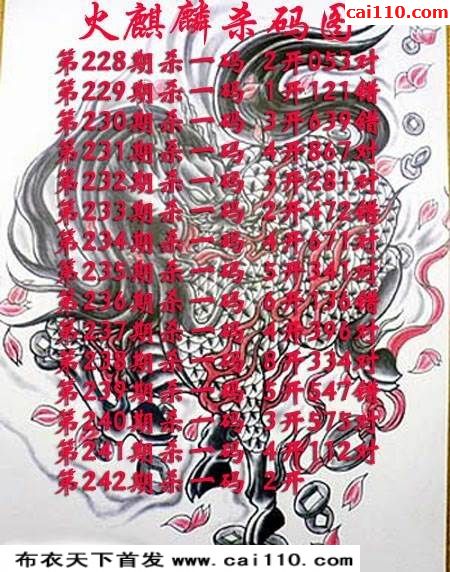 cai110.com
火麒麟杀码图
第228期杀一码 2开053对
第229期杀一码 1开121错
第230期杀一码 3开639错
第231期杀一码 4开867对
第232期杀一码 3开281对
第233期杀一码 2开472错
第234期杀一码 4开671对
第235期杀一码 5开341对
第236期杀一码 6开136错
第237期杀一码 4开396对
第238期杀一码 8开334对
第239期杀一码 5开547错
第240期杀一码 3开575对
第241期杀一码 4开112对
第242期杀一码 2开
布衣天下首发 www.cai110.com